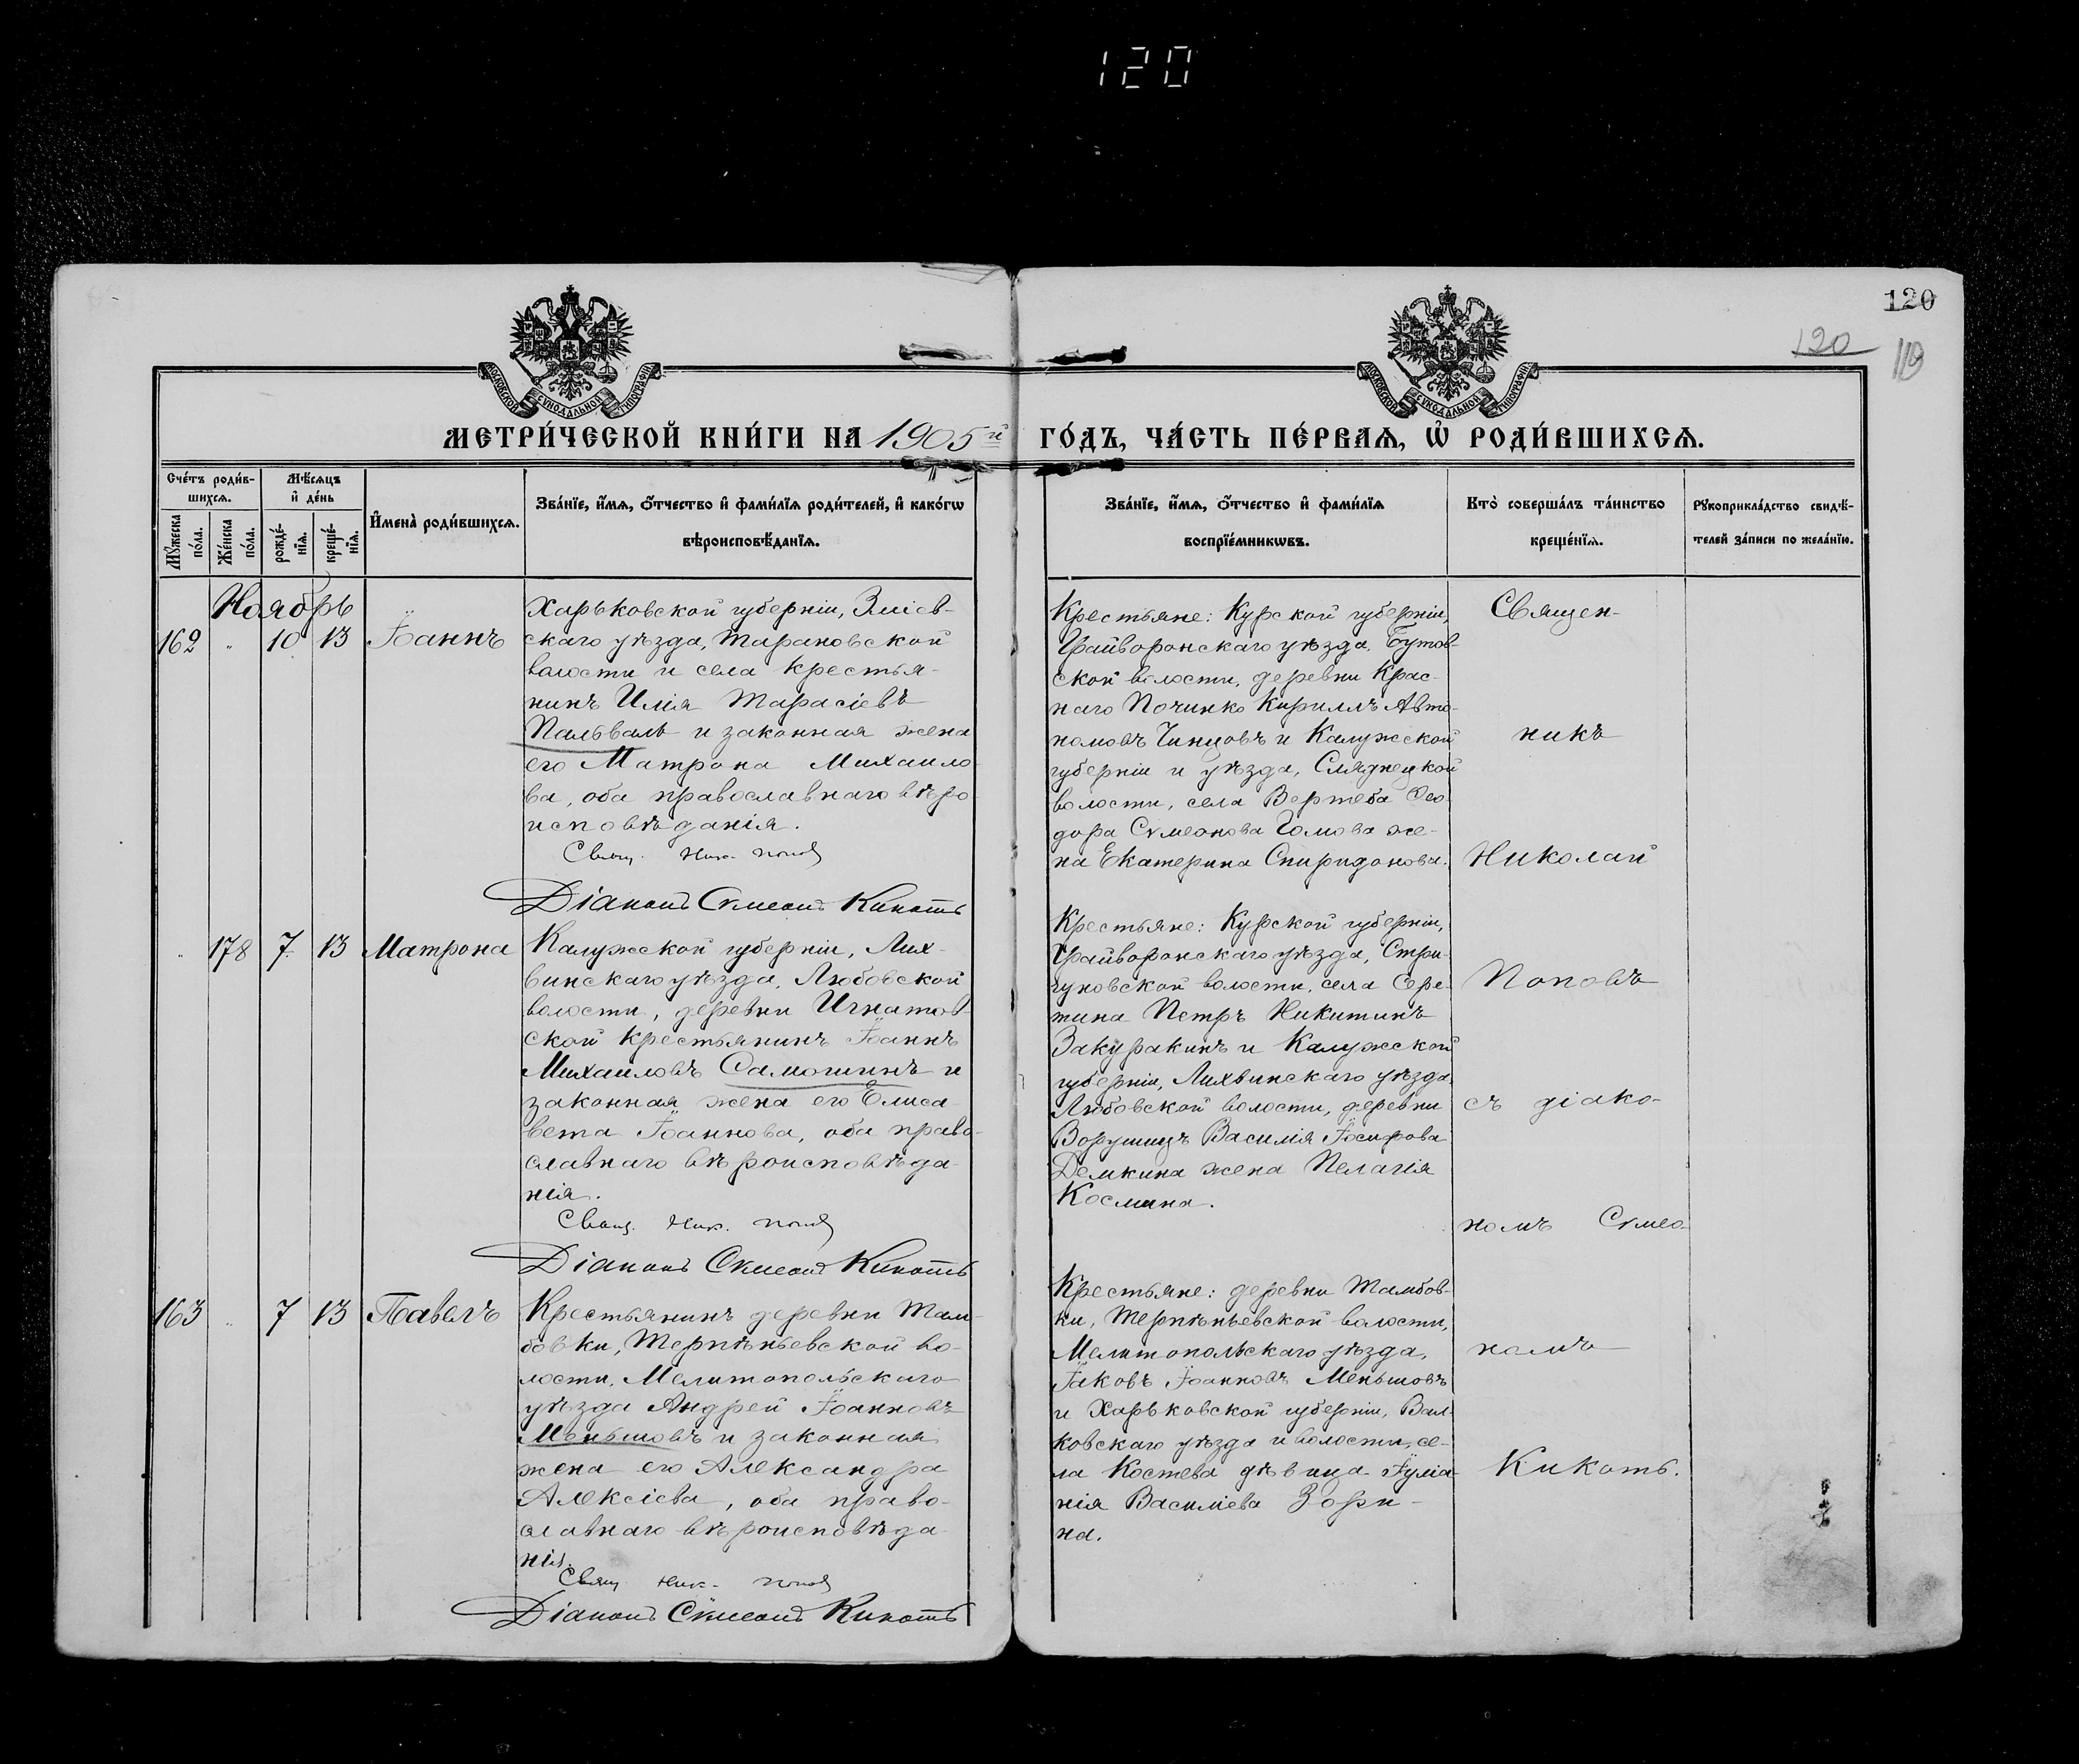 120
120
120
119
МЕТРИ́ЧЕСКОЙ КНИ́ГИ НА 1905й ГО́ДЪ, ЧА́СТЬ ПЕ́РВАЯ, Ѡ҆ РОДИ́ВШИХСЯ.
МОСКОВСКОЙ СѴНОДАЛЬНОЙ ТИПОГРАФІИ
МОСКОВСКОЙ СѴНОДАЛЬНОЙ ТИПОГРАФІИ
Сче́тъ роди́в-
шихсѧ.
Мѹ́жеска по́ла.
Же́нска по́ла.
Мѣ́сѧцъ
и҆ де́нь
рожде́-
нїѧ.
креще́-
нїѧ.
И҆мена̀ роди́вшихсѧ.
Зва́нїе, и҆́мѧ, о҆́тчество и҆ фами́лїѧ роди́телей, и҆ како́гѡ
вѣроисповѣ́данїѧ.
Зва́нїе, и҆́мѧ, о҆́тчество и҆ фами́лїѧ
воспрїе́мникѡвъ.
Кто̀ соверша́лъ та́инство
креще́нїѧ.
Рѹкоприкла́дство свидѣ́-
телей за́писи по жела́нїю.
Ноябрь
162 " 10 13 Іоаннъ
Харьковской губерніи, Зміев-
скаго уѣзда, Тарановской
волости и села крестья-
нинъ Илія Тарасіевъ
Пальваль и законная жена
его Матрона Михаило-
ва, оба православнаго вѣро-
исповѣданія.
Свящ. Ник. Попов
Діаконъ Сѵмеонъ Кикоть
Крестьяне: Курской губерніи,
Грайворонскаго уѣзда, Бутов-
ской волости, деревни Крас-
наго Починко Кириллъ Авто-
номовъ Чинцовъ и Калужской
губерніи и уѣзда,
волости, села Вертеба Ѳео-
дора Сѵмеонова жe-
на Екатерина Спиридонова.
" 178 7 13 Матрона
Калужской губерніи, Лих-
винскаго уѣзда, Любовской
волости, деревни Игнатов-
ской крестьянинъ Іоаннъ
Михаиловъ Самошинъ и
законная жена его Елиса-
вета Іоаннова, оба право-
славнаго вѣроисповѣда-
нія.
Свящ. Ник. Попов
Діаконъ Сѵмеонъ Кикоть
Крестьяне: Курской губерніи,
Грайворонскаго уѣзда, Стри-
гуновской волости, села Сере-
тина Петръ Никитинъ
Закуракинъ и Калужской
губерніи, Лихвинскаго уѣзда,
Любовской волости, деревни
Ворушицъ Василія Іосифова
Демкина жена Пелагія
Космина.
163 " 7 13 Павелъ
Крестьянинъ деревни Там-
бовки, Терпѣньевской во-
лости, Мелитопольскаго
уѣзда Андрей Іоанновъ
Меньшовъ и законная
жена его Александра
Алексіева, оба право-
славнаго вѣроисповѣда-
нія.
Свящ Ник. Попов
Діаконъ Сѵмеонъ Кикоть
Крестьяне: деревни Тамбов-
ки, Терпѣньевской волости,
Мелитопольскаго уѣзда,
Іаковъ Іоанновъ Меньшовъ
и Харьковской губерніи, Вал-
ковскаго уѣзда и волости, се-
ла Костева дѣвица Іуліа-
нія Василіева Зори-
на.
Священ-
никъ
Николай
Поповъ
съ діако-
номъ Сѵмео-
номъ
Кикоть.